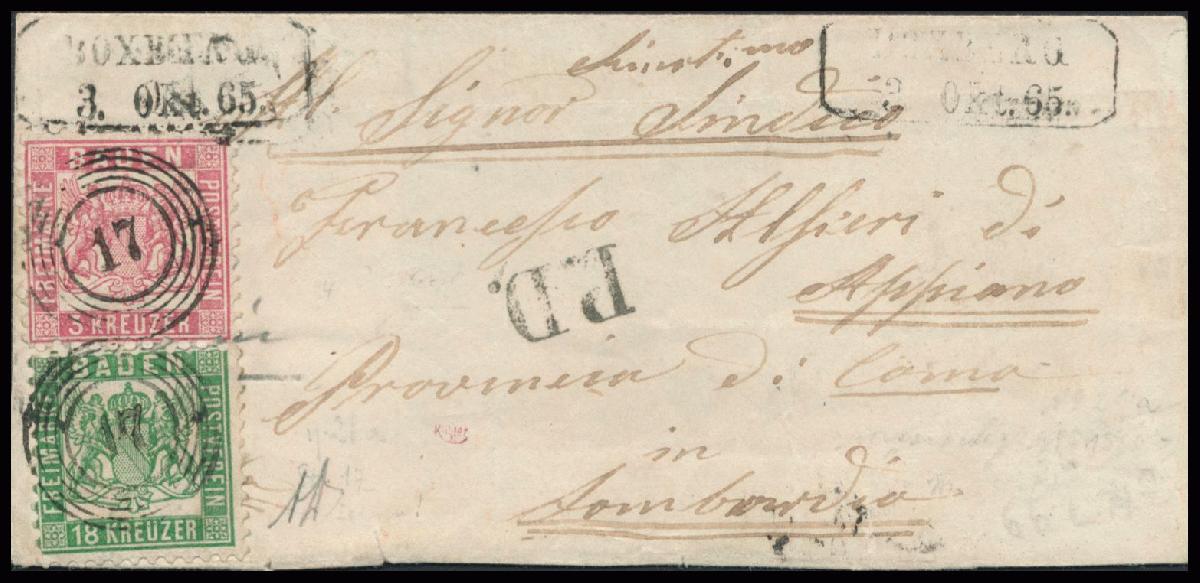 BOXBERG
3. Okt. 65.
BOXBERG
3. Okt. 65.
Al Signor Sindico
Francesco Alfieri di
Appiano
Provincia di Como
in
Lombardia
P.D.
BADEN
FREIMARKE
POSTVEREIN
3 KREUZER
17
BADEN
FREIMARKE
POSTVEREIN
18 KREUZER
17